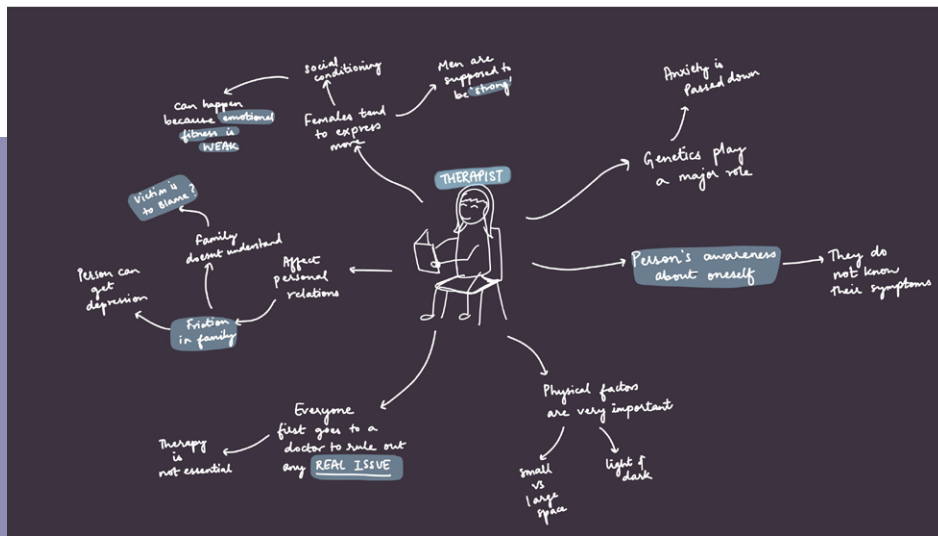 THERAPIST
Females tend
to express
more
social
conditioning
can happen
because emotional
fitness is
WEAK
Men are
supposed to
be 'strong'
Genetics play
a major role
Anxiety is
Passed down
Person's awareness
about oneself
They do
not know
their symptoms
Physical factors
are very important
small
vs
large
space
light &
dark
Everyone
first goes to a
doctor to rule out
any REAL ISSUE
Therapy
is
not essential
Affect
personal
relations
Friction
in family
Person can
get
depression
Family
doesnt understand
Victim is
to Blame?